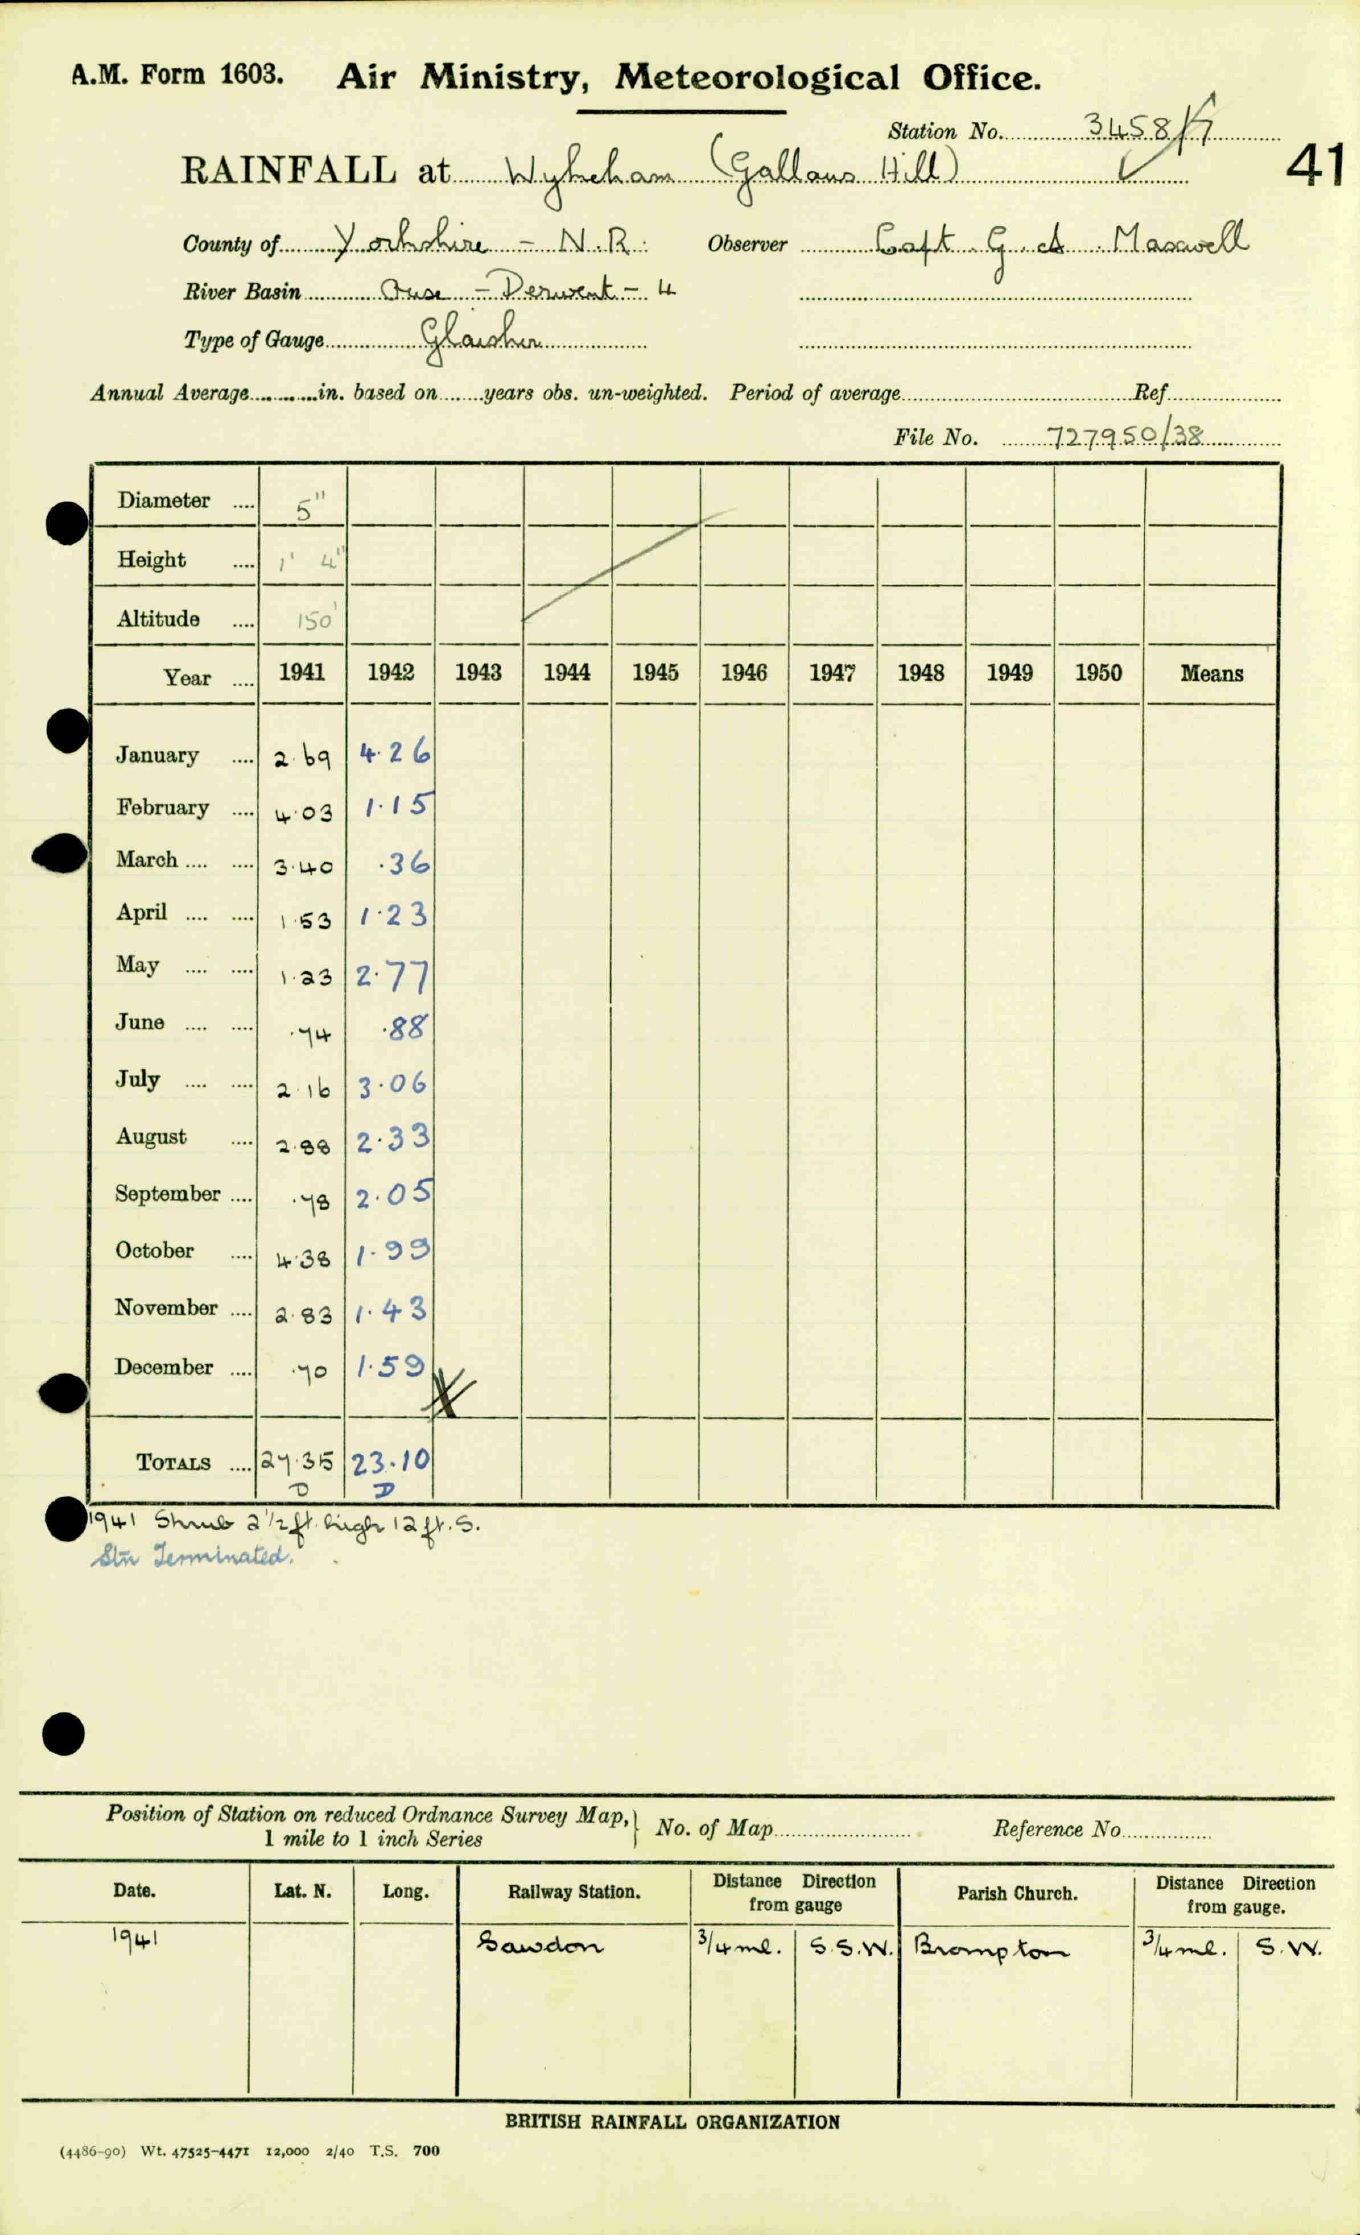 A.M. Form 1603. Air Ministry, Meteorological Office.
Station No. 3458/7
41
RAINFALL at Wykeham (Gallows Hill)
County of Yorkshire - N.R. Observer Capt. G. A. Maxwell
River Basin Ouse - Derwent - 4
Type of Gauge Glaisher
Annual Average in. based on years obs. un-weighted. Period of average Ref.
File No. 727950/38
Diameter 5"
Height 1' 4"
Altitude 150'
Year 1941 1942 1943 1944 1945 1946 1947 1948 1949 1950 Means
January 2.69 4.26
February 4.03 1.15
March 3.40 .36
April 1.53 1.23
May 1.23 2.77
June .74 .88
July 2.16 3.06
August 2.88 2.33
September .78 2.05
October 4.38 1.99
November 2.83 1.43
December .70 1.59
TOTALS 27.35 23.10
D D
1941 Shrub 2 1/2 ft. high 12 ft. S.
Stn Terminated.
Position of Station on reduced Ordnance Survey Map, No. of Map Reference No.
1 mile to 1 inch Series
Date. Lat. N. Long. Railway Station. Distance Direction from gauge Parish Church. Distance Direction from gauge.
1941 Sawdon 3/4 ml. S.S.W. Brompton 3/4 ml. S.W.
BRITISH RAINFALL ORGANIZATION
(4486-90) Wt. 47525-4471 12,000 2/40 T.S. 700